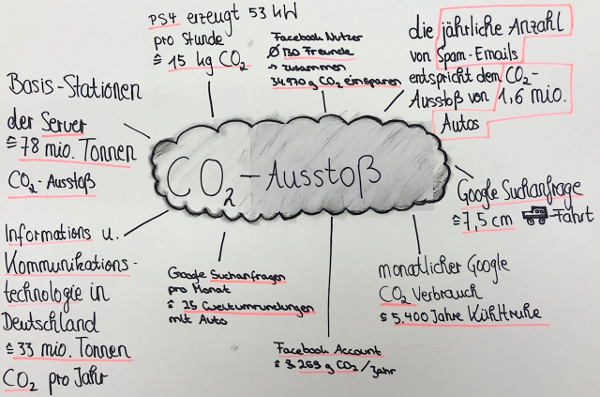 PS4 erzeugt 53 kW
pro Stunde
≙ 15 kg CO₂
Facebook Nutzer
Ø 130 Freunde
→ zusammen
34970 g CO₂ einsparen
die jährliche Anzahl
von Spam-Emails
entspricht dem CO₂-
Ausstoß von 1,6 mio.
Autos
Basis-Stationen
der Server
≙ 78 mio. Tonnen
CO₂-Ausstoß
CO₂-Ausstoß
Google Suchanfrage
≙ 7,5 cm Fahrt
Informations u.
Kommunikations-
technologie in
Deutschland
≙ 33 mio. Tonnen
CO₂ pro Jahr
Google Suchanfragen
pro Monat
≙ 25 Weltumrundungen
mit Auto
monatlicher Google
CO₂ Verbrauch
≙ 5.400 Jahre Kühltruhe
Facebook Account
≙ 269 g CO₂ / Jahr